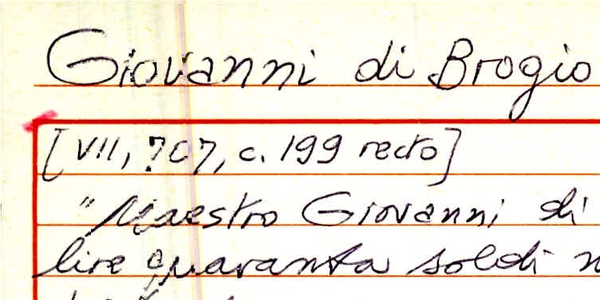 Giovanni di Brogio
[VII, 707, c. 199 recto]
"Maestro Giovanni di
lire quaranta soldi n